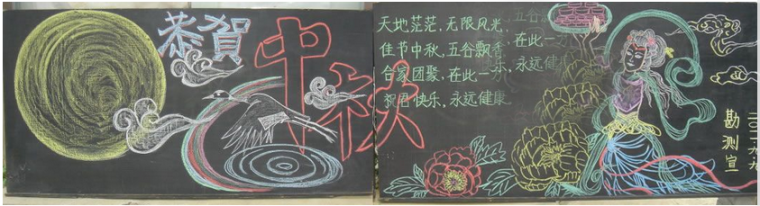 恭賀
中秋
天地茫茫,无限风光,
佳节中秋,五谷飘香,
合家团聚,在此一分,
祝君快乐,永远健康
五谷
在此一分,
永远健康
勘测宣
二〇一一.九.九